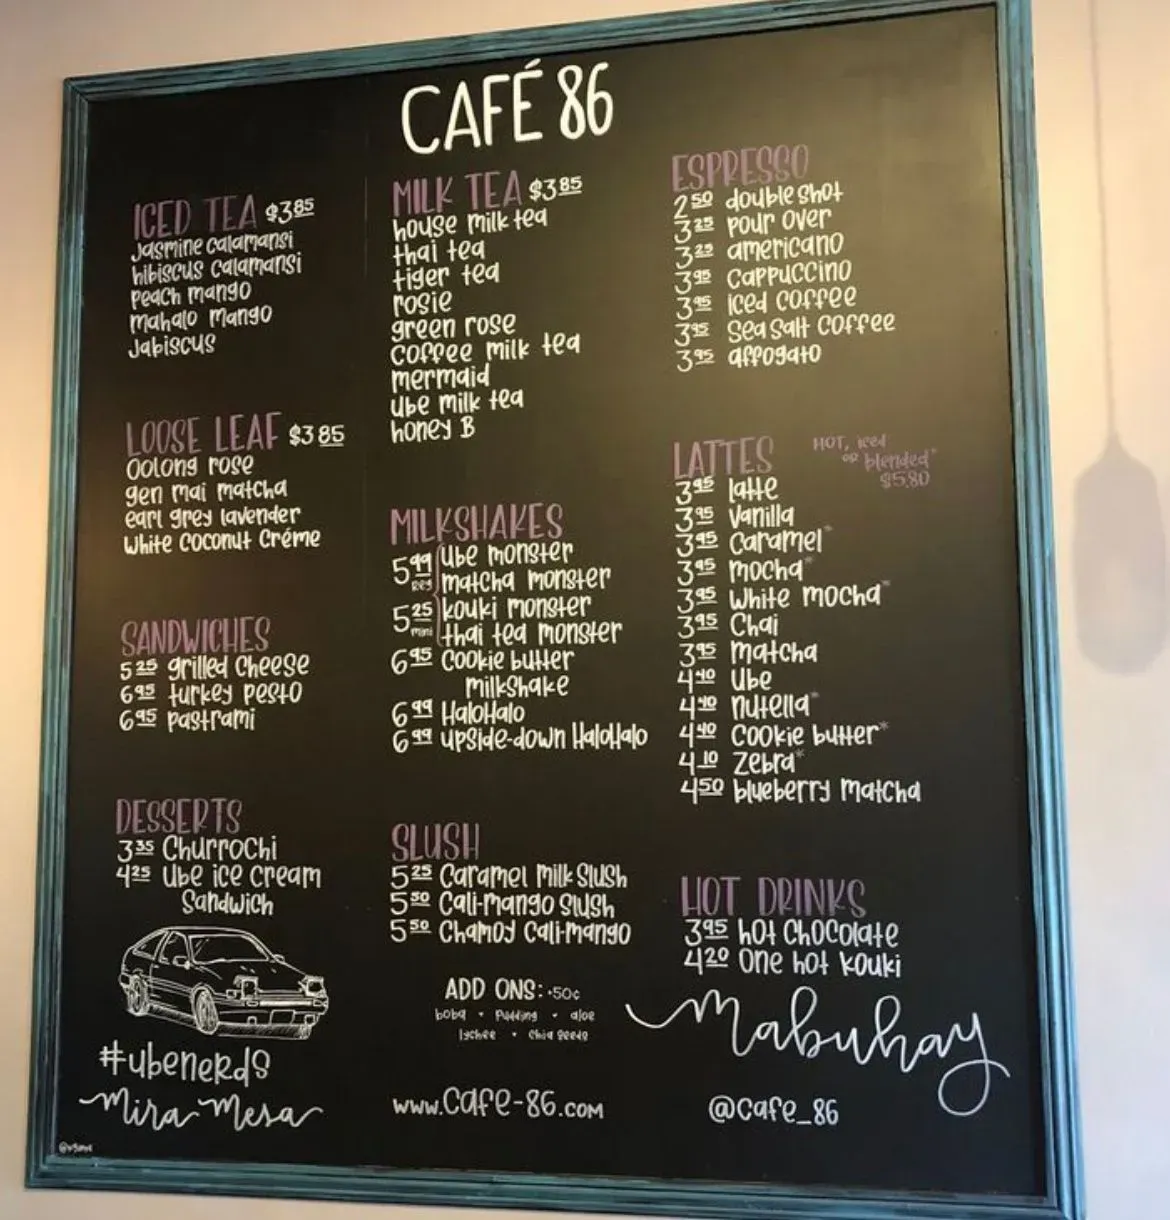 CAFÉ 86
ICED TEA $3.85
Jasmine Calamansi
hibiscus Calamansi
Peach mango
mahalo mango
Jabiscus
LOOSE LEAF $3.85
Oolong rose
gen mai matcha
earl grey lavender
White Coconut Créme
SANDWICHES
5.25 grilled Cheese
6.95 turkey pesto
6.95 pastrami
DESSERTS
3.35 Churrochi
4.25 Ube ice cream
Sandwich
#ubenerds
Mira Mesa
MILK TEA $3.85
house milk tea
thai tea
tiger tea
rosie
green rose
Coffee milk tea
mermaid
ube milk tea
honey B
MILKSHAKES
5.99 reg Ube monster
matcha monster
5.25 mini kouki monster
thai tea monster
6.95 Cookie butter
milkshake
6.99 HaloHalo
6.99 upside-down HaloHalo
SLUSH
5.25 Caramel Milk Slush
5.50 Cali-Mango Slush
5.50 Chamoy Cali-mango
ADD ONS: .50¢
boba • Pudding • aloe
lychee • Chia Seeds
www.Cafe-86.com
ESPRESSO
2.50 double shot
3.25 pour over
3.25 americano
3.95 Cappuccino
3.95 iced Coffee
3.95 Sea Salt Coffee
3.95 affogato
LATTES HOT, iced
or blended*
$5.80
3.95 latte
3.95 Vanilla
3.95 Caramel*
3.95 mocha*
3.95 White mocha*
3.95 Chai
3.95 matcha
4.40 Ube
4.40 nutella*
4.40 Cookie butter*
4.10 Zebra*
4.50 blueberry matcha
HOT DRINKS
3.95 hot Chocolate
4.20 One hot Kouki
Mabuhay
@Cafe_86